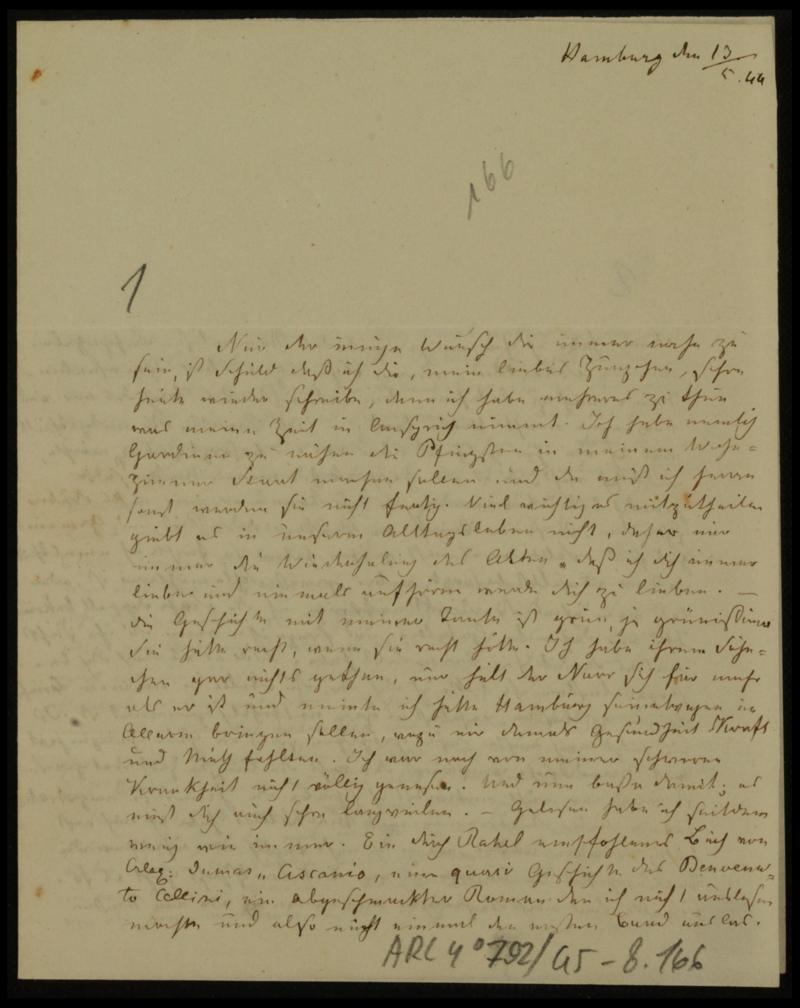 Hamburg den 13/5.44
166
1
Nur der innige Wunsch dir immer nahe zu
sein, ist Schuld daß ich dir, mein liebes Zunzchen, schon
heute wieder schreibe, denn ich habe mehreres zu thun
was meine Zeit in Anspruch nimmt. Ich habe nemlich
Gardinen zu nähen die Pfingsten in meinem Wohn-
zimmer Staat machen sollen und da muß ich
sonst werden sie nicht fertig. Viel wichtiges mitzutheilen
giebt es in unserem Alltagsleben nicht, daher nur
immer die Wiederholung des Alten, daß ich dich immer
liebe und niemals aufhören werde dich zu lieben. —
Die Geschichte mit meiner Tante ist grün, ja grünissimo
Sie hätte recht, wenn sie recht hätte. Ich habe ihrem Söhn-
chen gar nichts gethan, nur hält der Narr sich für mehr
als er ist und meinte ich hätte Hamburg seinetwegen in
Allarm bringen sollen, wozu mir damals Gesundheit Kraft
und Muth fehlten. Ich war noch von meiner schweren
Krankheit nicht völlig genesen. Und nun basta damit; es
muß dich auch schon langweilen. — Gelesen habe ich seitdem
wenig wie immer. Ein durch Rahel empfohlenes Buch von
Alex: Dumas „Ascanio, eine quasi Geschichte des Benvenu-
to Cellini, ein abgeschmackter Roman den ich nicht auslesen
mochte und also nicht einmal den ersten Band auslas.
ARC 4° 792/G5-8.166